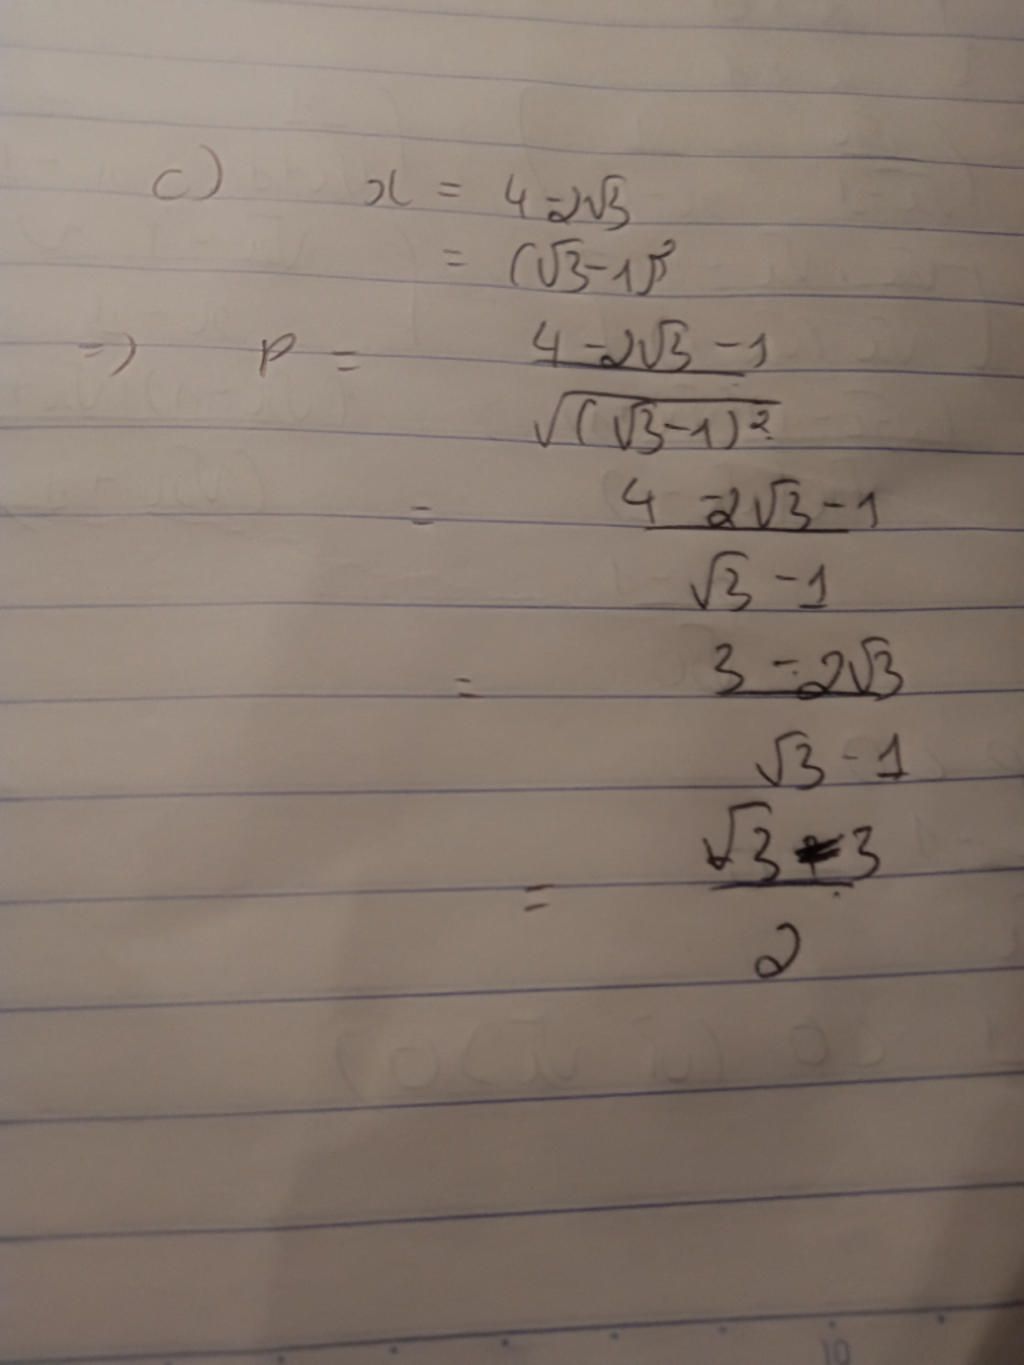 c) x = 4 - 2√3
= (√3 - 1)²
=> P = (4 - 2√3 - 1) / √((√3 - 1)²)
= (4 - 2√3 - 1) / (√3 - 1)
= (3 - 2√3) / (√3 - 1)
= (√3 - 3) / 2
10